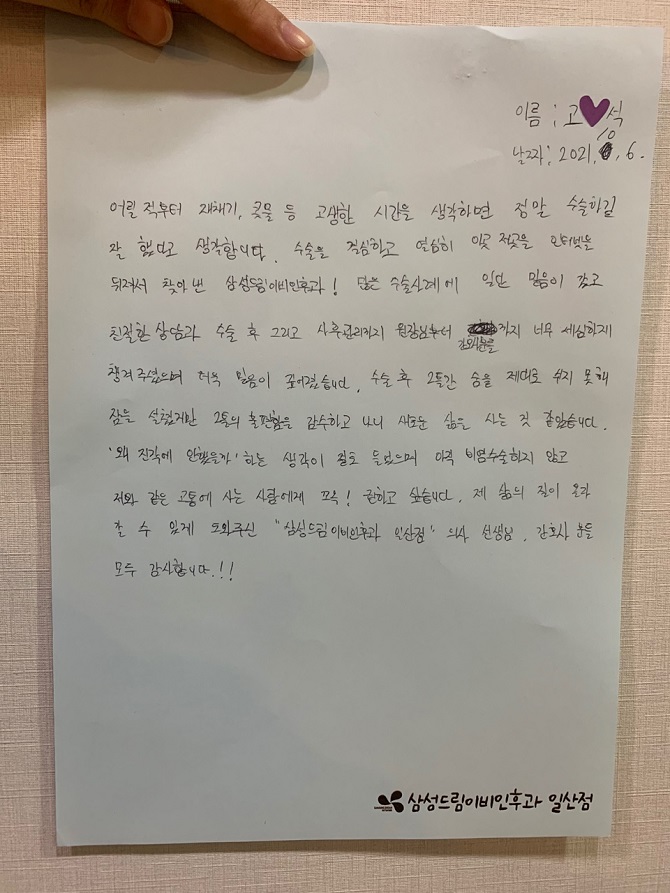 이름 : 고 석
날짜: 2021. 10. 6.
어릴 적부터 재채기, 콧물 등 고생한 시간을 생각하면 정말 수술하길
잘 했다고 생각합니다. 수술을 결심하고 열심히 이곳 저곳을 인터넷을
뒤져서 찾아 낸 삼성드림이비인후과! 많은 수술사례에 일단 믿음이 갔고
친절한 상담과 수술 후 그리고 사후관리까지 원장님부터 간호사분들까지 너무 세심하게
챙겨주셨으며 더욱 믿음이 깊어졌습니다. 수술 후 2틀간 숨을 제대로 쉬지 못해
잠을 설쳤지만 2틀의 불편함을 감수하고 나니 새로운 삶을 사는 것 같았습니다.
'왜 진작에 안했을까' 하는 생각이 절로 들었으며 아직 비염수술하지 않고
저와 같은 고통에 사는 사람에게 꼭! 권하고 싶습니다. 제 삶의 질이 올라
갈 수 있게 도와주신 "삼성드림이비인후과 일산점" 의사 선생님, 간호사 분들
모두 감사합니다.!!
삼성드림이비인후과 일산점